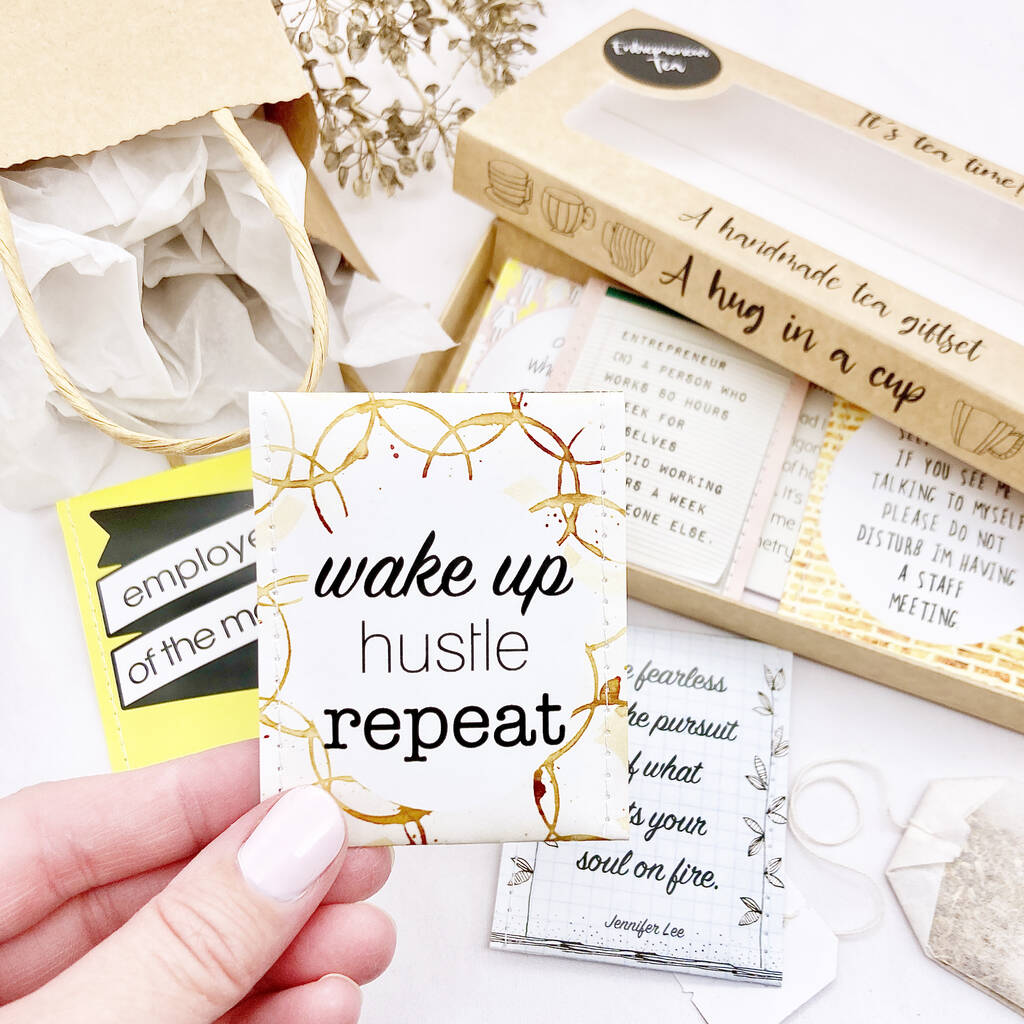 Entrepreneur
Tea
It's tea time!
A handmade tea giftset
A hug in a cup
ENTREPRENEUR
(N) A PERSON WHO
WORKS 80 HOURS
FOR
WORKING
A WEEK
ELSE.
IF YOU SEE ME
TALKING TO MYSELF
PLEASE DO NOT
DISTURB IM HAVING
A STAFF
MEETING.
employe
of the mo
wake up
hustle
repeat
fearless
pursuit
what
your
soul on fire.
Jennifer Lee